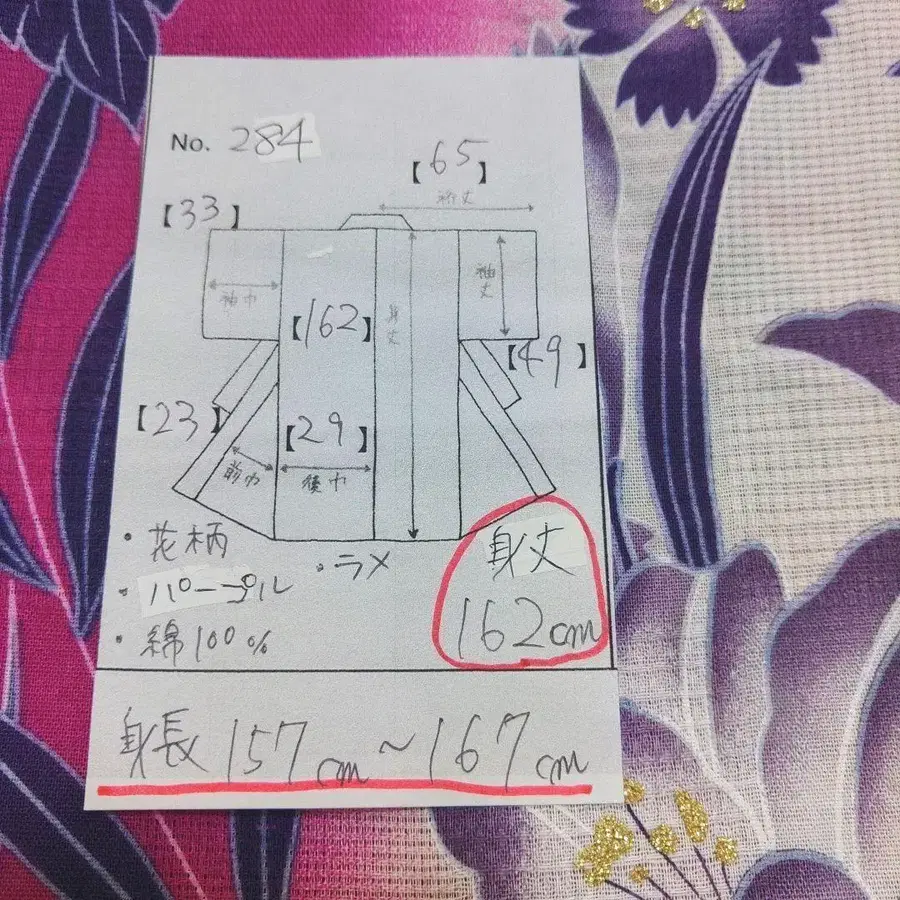 No. 284
【65】
裄丈
【33】
袖巾
袖丈
【162】
身丈
【49】
【23】
【29】
前巾
後巾
・花柄
・ラメ
・パープル
・綿100%
身丈
162cm
身長157cm~167cm